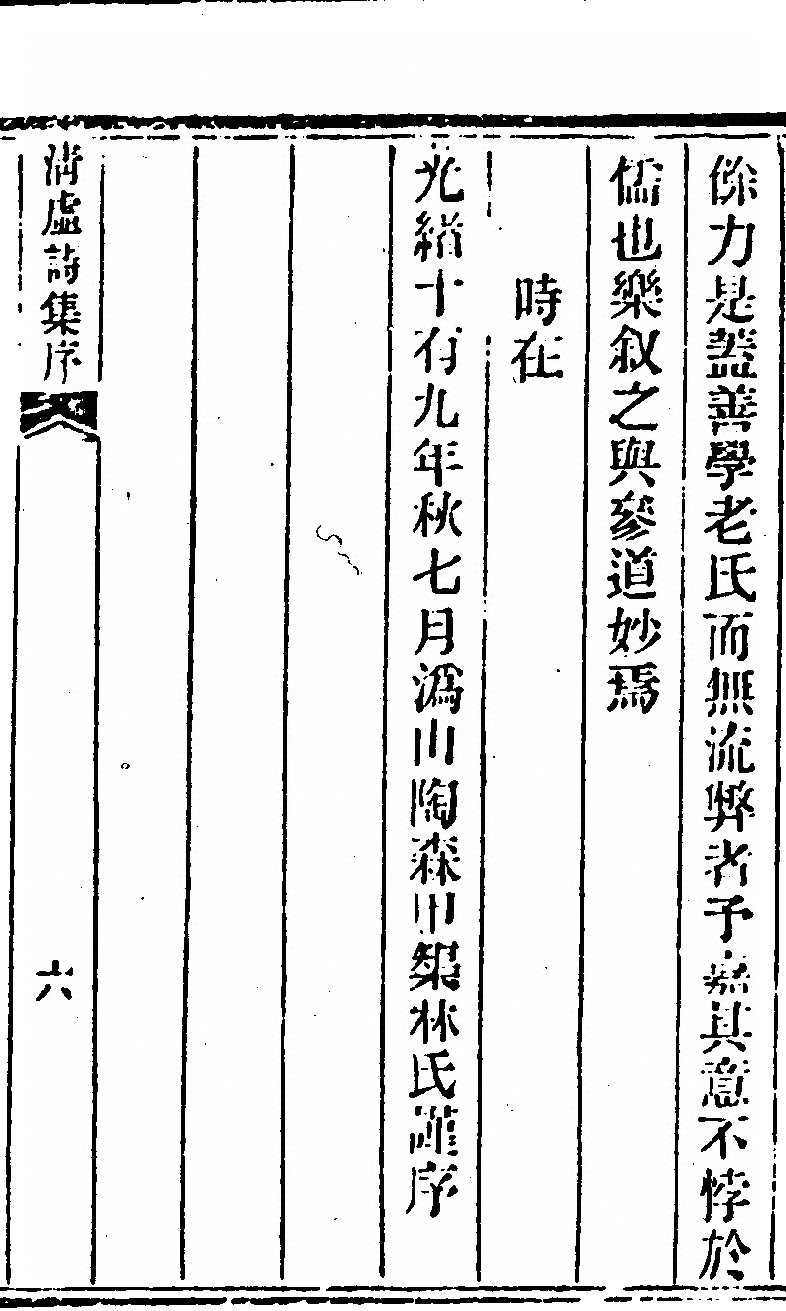 餘力是蓋善學老氏而無流弊者予嘉其意不悖於
儒也樂叙之與參道妙焉
時在
光緒十有九年秋七月潙山陶森甲榘林氏謹序
清虛詩集序
六